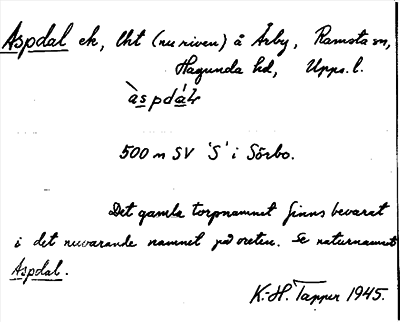 Aspdal ek, lht (nu riven) å Årby, Ramsta sn,
Hagunda hd, Upps. l.
àspdáɫ
500 m SV 'S' i Sörbo.
Det gamla torpnamnet finns bevarat
i det nuvarande namnet på orten. Se naturnamnet
Aspdal.
K.-H. Tapper 1945.